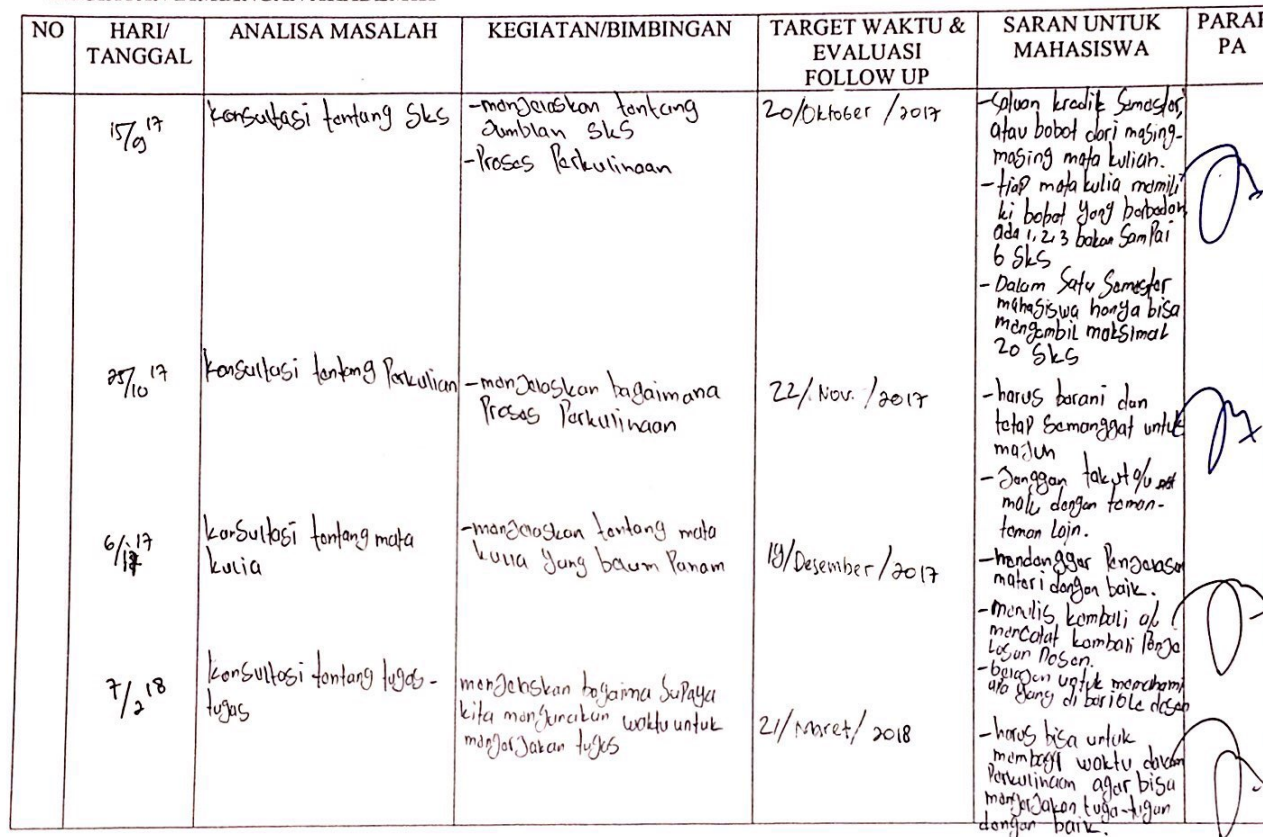 NO
HARI/
TANGGAL
ANALISA MASALAH
KEGIATAN/BIMBINGAN
TARGET WAKTU &
EVALUASI
FOLLOW UP
SARAN UNTUK
MAHASISWA
PARAF
PA
15/9 17
konsultasi tentang SKS
-menjelaskan tentang
Jumblah SKS
-Proses Perkulihaan
20/Oktober /2017
-Satuan kredit Semester,
atau bobot dari masing-
masing mata kuliah.
-tiap mata kulia memili
ki bobot yang berbedan
ada 1,2,3 bakan Sampai
6 SKS
-Dalam Satu Semester
mahasiswa hanya bisa
mengembil maksimal
20 SKS
25/10 17
konsultasi tentang Perkulian
-menjelaskan bagaimana
Proses Perkulihaan
22/Nov./2017
-harus berani dan
tetap Semanggat untuk
majun
-Janggan takut
malu dengan teman-
teman lain.
6/ 17
konSultasi tentang mata
kulia
-menjelaskan tentang mata
kulia yang belum Panam
19/Desember/2017
-mendanggar Penjelasan
materi dengan baik.
-menulis kembali
mencatat kembali Penje
lasan Dosen.
-belajar untuk memahami
apa yang di berikan dosen
7/2 18
konSultasi tentang tugas-
tugas
menjelaskan bagaima Supaya
kita mengunakan waktu untuk
mengerjakan tugas
21/Maret/2018
-harus bisa untuk
membagi waktu dalam
Perkulihaan agar bisa
mengerjakan tuga-tugan
dengan baik.